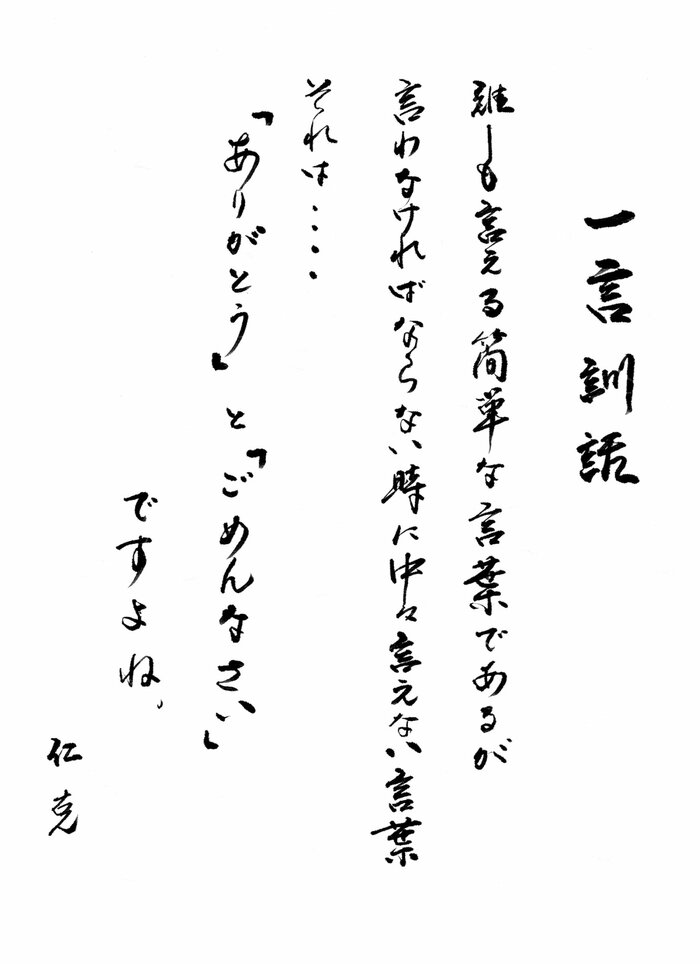 一言訓話
誰しも言える簡単な言葉であるが
言わなければならない時に中々言えない言葉
それは・・・・
「ありがとう」と「ごめんなさい」
ですよね。
仁克